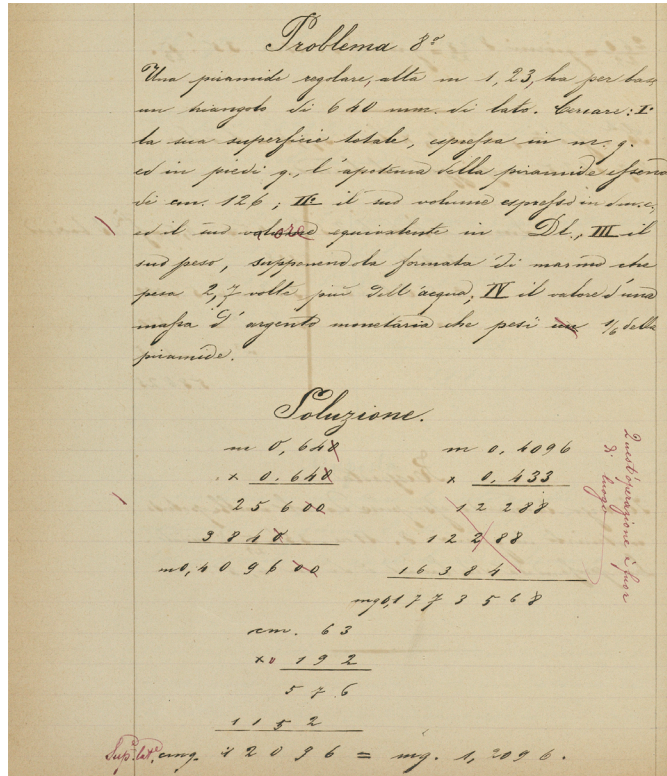 Problema 8º
Una piramide regolare, alta m 1,23, ha per ba
un triangolo di 640 mm. di lato. Cercare: Iº
la sua superficie totale, espressa in m. q.
ed in piedi q., l'apotema della piramide essend
di cm. 126; IIº il suo volume espresso in dm.c,
ed il suo equivalente in Dl., III il
suo peso, supponendola formata di marmo che
pesa 2,7 volte più dell'acqua; IV il valore d'una
massa d'argento monetaria che pesi un 1/6 della
piramide.
Soluzione.
m 0,640 m 0,4096
x 0.640 x 0,433
25600 12288
3840 12288
m0,409600 16384
mq0,1773568
Quest'operazione è fuor
di luogo
cm. 63
x0 192
576
1152
Sup. lat. cmq. 12096 = mq. 1,2096.